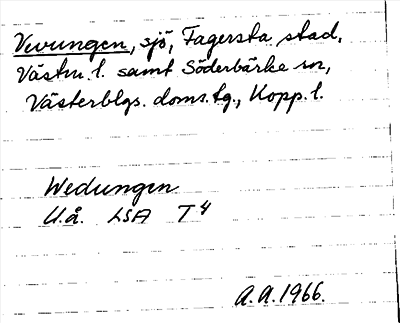 Vevungen, sjö, Fagersta stad,
Västm. l. samt Söderbärke sn,
Västerbgs. doms.tg., Kopp. l.
Wedungen
U.å. LSA T4
A.A. 1966.